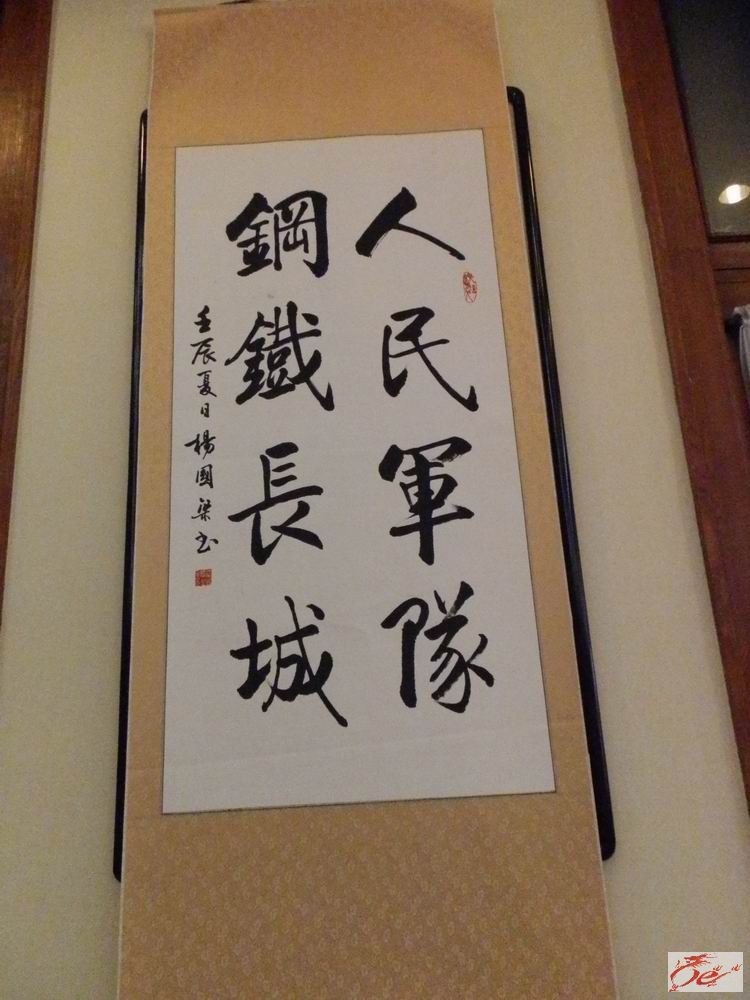 人民軍隊
鋼鐵長城
壬辰夏日楊國梁书